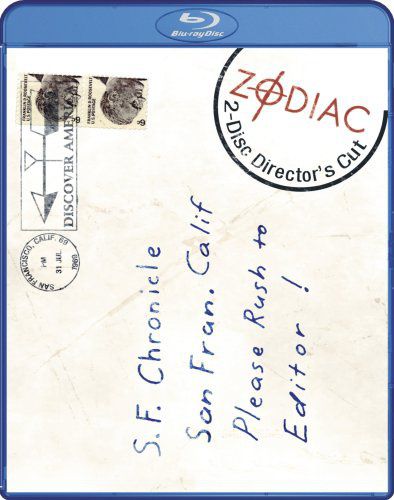 Blu-ray Disc
ZODIAC
2-Disc Director's Cut
FRANKLIN D. ROOSEVELT
U.S. POSTAGE
6¢
FRANKLIN D. ROOSEVELT
U.S. POSTAGE
6¢
DISCOVER AMERICA
SAN FRANCISCO, CALIF. 69
PM
31 JUL
1969
S.F. Chronicle
San Fran. Calif
Please Rush to
Editor !